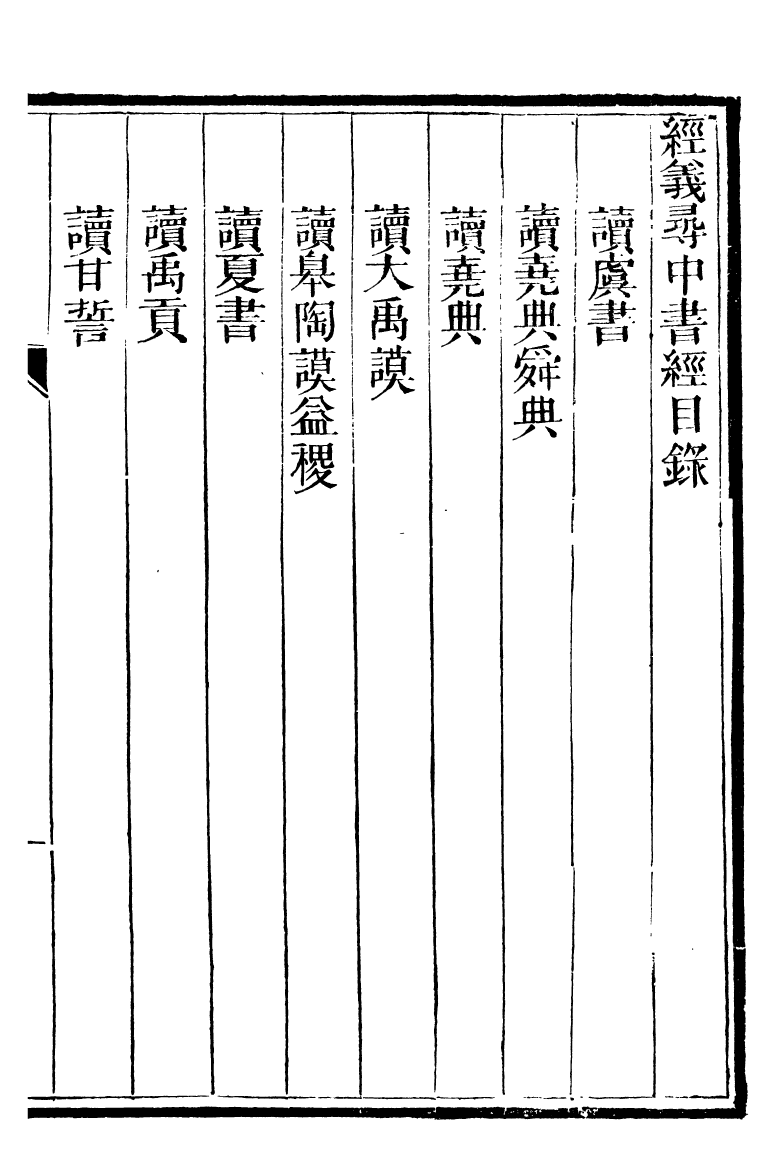 經義尋中書經目錄
讀虞書
讀堯典舜典
讀堯典
讀大禹謨
讀皋陶謨益稷
讀夏書
讀禹貢
讀甘誓